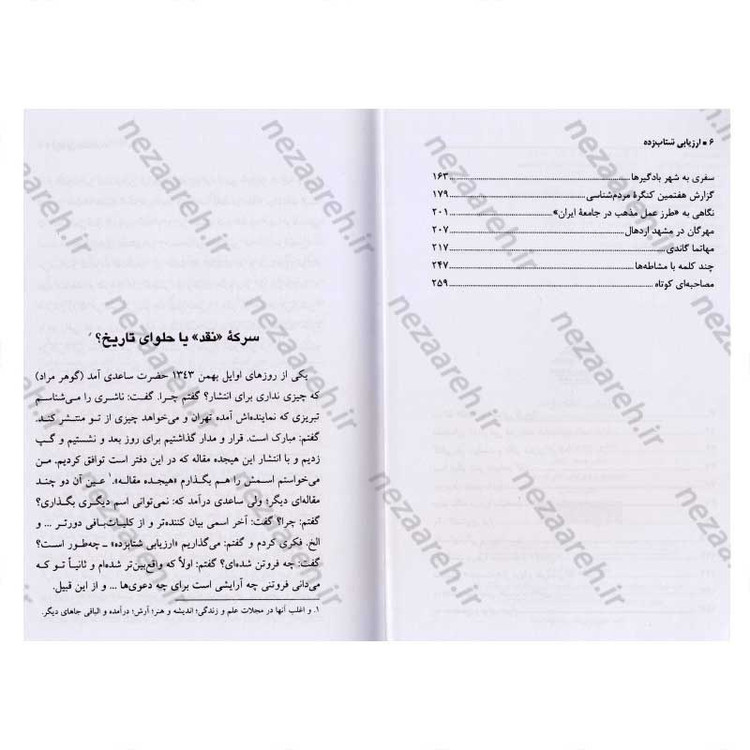 ۶ ▪ ارزیابی شتاب‌زده
سفری به شهر بادگیرها ۱۶۳
گزارش هفتمین کنگرهٔ مردم‌شناسی ۱۷۹
نگاهی به «طرز عمل مذهب در جامعهٔ ایران» ۲۰۱
مهرگان در مشهد اردهال ۲۰۷
مهاتما گاندی ۲۱۷
چند کلمه با مشاطه‌ها ۲۴۷
مصاحبه‌ای کوتاه ۲۵۹
سرکهٔ «نقد» یا حلوای تاریخ؟
یکی از روزهای اوایل بهمن ۱۳۴۳ حضرت ساعدی آمد (گوهر مراد)
که چیزی نداری برای انتشار؟ گفتم چرا. گفت: ناشری را می‌شناسم
تبریزی که نماینده‌اش آمده تهران و می‌خواهد چیزی از تو منتشر کند.
گفتم: مبارک است. قرار و مدار گذاشتیم برای روز بعد و نشستیم و گپ
زدیم و با انتشار این هیجده مقاله که در این دفتر است توافق کردیم. من
می‌خواستم اسمش را هم بگذارم «هیجده مقاله».۱ عین آن دو چند
مقاله‌ای دیگر؛ ولی ساعدی درآمد که: نمی‌توانی اسم دیگری بگذاری؟
گفتم: چرا؟ گفت: آخر اسمی بیان کننده‌تر و از کلیات‌بافی دورتر ... و
الخ. فکری کردم و گفتم: می‌گذاریم «ارزیابی شتابزده» ـ چه‌طور است؟
گفت: چه فروتن شده‌ای؟ گفتم: اولاً که واقع‌بین‌تر شده‌ام و ثانیاً تو که
می‌دانی فروتنی چه آرایشی است برای چه دعوی‌ها ... و از این قبیل.
۱. و اغلب آنها در مجلات علم و زندگی؛ اندیشه و هنر؛ آرش؛ درآمده و الباقی جاهای دیگر.
nezaareh.ir
nezaareh.ir
nezaareh.ir
nezaareh.ir
nezaareh.ir
nezaareh.ir
nezaareh.ir
nezaareh.ir
nezaareh.ir